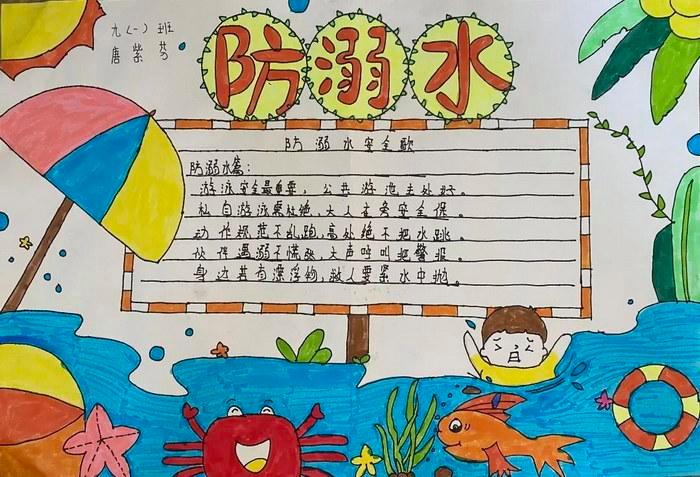 九(一)班
唐紫芬
防溺水
防溺水安全歌
防溺水篇:
游泳安全最重要,公共游池去处好。
私自游泳要杜绝,大人在旁安全保。
动作规范不乱跑,高处绝不把水跳。
伙伴遇溺不慌张,大声呼叫把警报。
身边若有漂浮物,救人要紧水中抛。